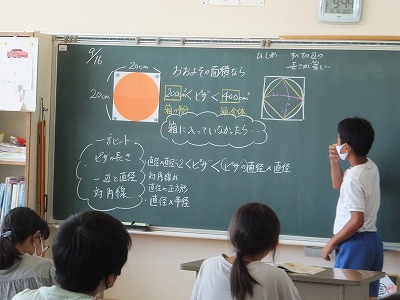 9/16
20cm
20cm
おおよその面積なら
200cm² < ピザ < 400cm²
箱の半分
箱全体
箱に入っていなかたら…
ひし形…すべての辺の
長さが等しい
ヒント
ピザの長さ
一辺と直径
対角線
・直径×直径÷2 < ピザ < (ピザの直径×直径
対角線が
直径の正方形
・直径×半径